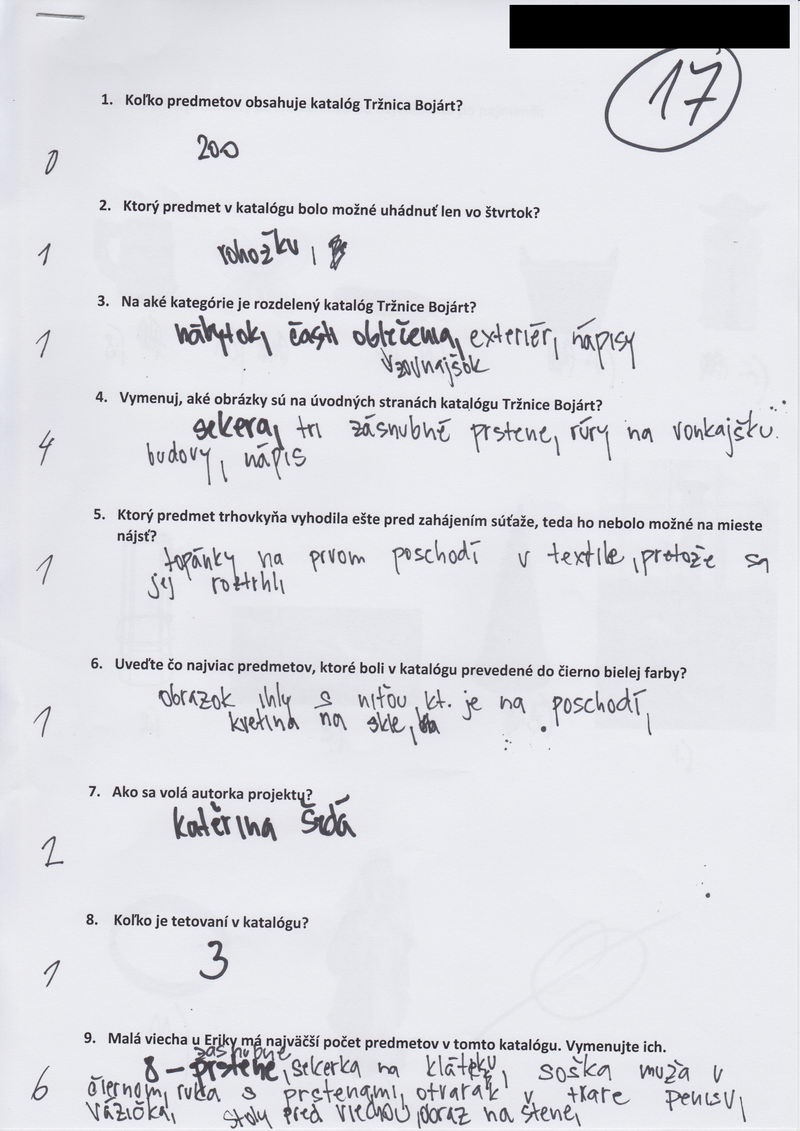 17
1. Koľko predmetov obsahuje katalóg Tržnica Bojárt?
0 200
2. Ktorý predmet v katalógu bolo možné uhádnuť len vo štvrtok?
1 rohožku,
3. Na aké kategórie je rozdelený katalóg Tržnice Bojárt?
1 nábytok, časti oblečenia, exteriér, nápisy
vzovnajšok
4. Vymenuj, aké obrázky sú na úvodných stranách katalógu Tržnice Bojárt?
sekera, tri zásnubné prstene, rúry na vonkajšku
4 budovy, nápis
5. Ktorý predmet trhovkyňa vyhodila ešte pred zahájením súťaže, teda ho nebolo možné na mieste
nájsť?
1 topánky na prvom poschodí v textile, pretože sa
jej roztrhli
6. Uveďte čo najviac predmetov, ktoré boli v katalógu prevedené do čierno bielej farby?
obrázok ihly s niťou, kt. je na poschodí,
1 kvetina na skle,
7. Ako sa volá autorka projektu?
2 kateřina Šedá
8. Koľko je tetovaní v katalógu?
1 3
9. Malá viecha u Eriky má najväčší počet predmetov v tomto katalógu. Vymenujte ich.
zásnubné
8 – prstene, sekerka na klátiku, soška muža v
6 čiernom, ruka s prstenami, otvarák v tvare penisu,
vázička, stoly pred viechou, obraz na stene,